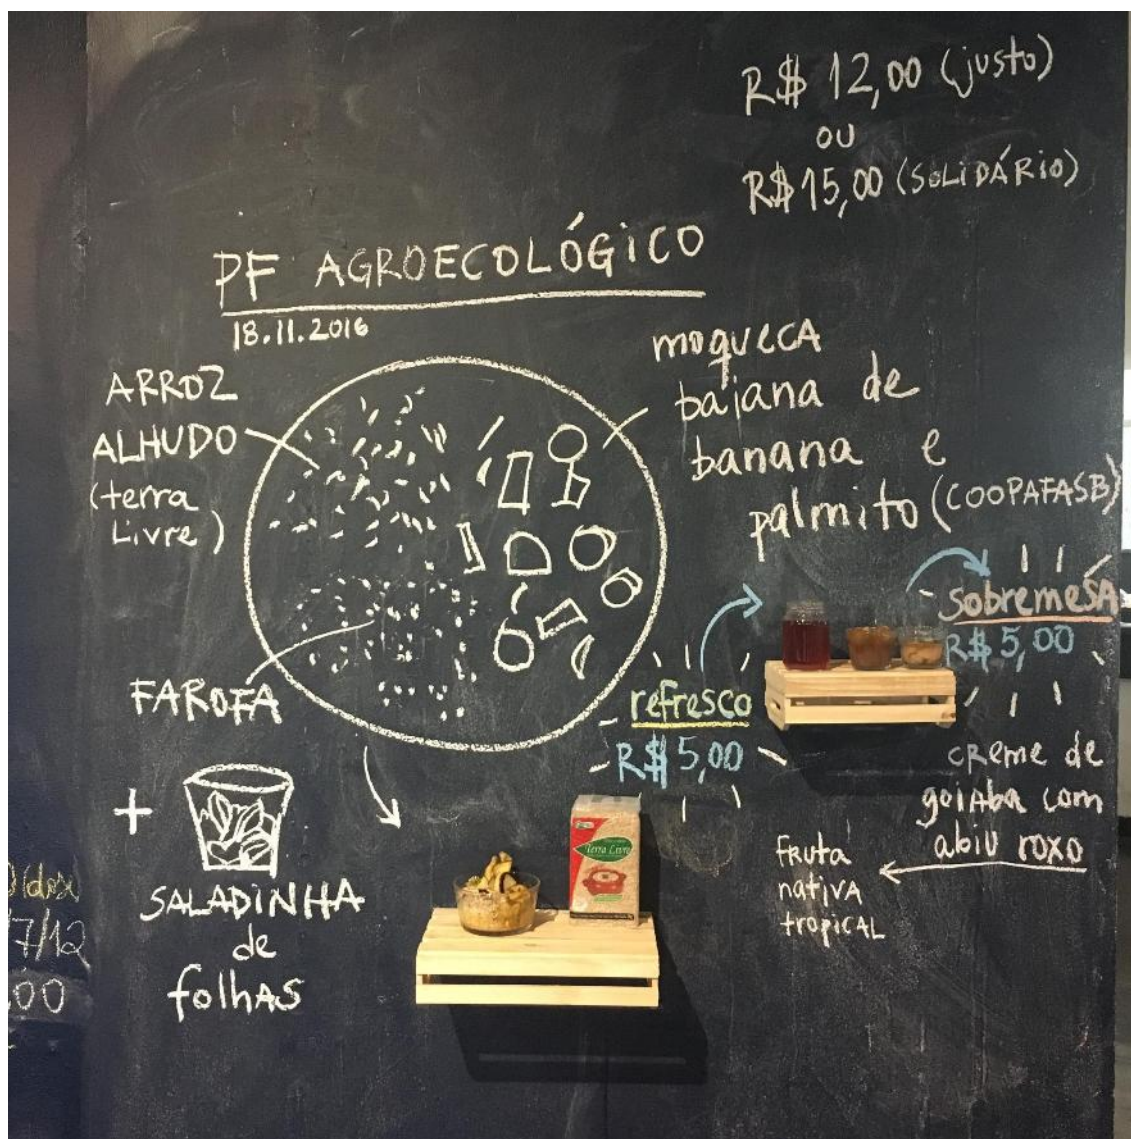 R$ 12,00 (justo)
ou
R$ 15,00 (SOLIDÁRIO)
PF AGROECOLÓGICO
18.11.2016
ARROZ
ALHUDO
(terra
Livre)
moqueca
baiana de
banana e
palmito (COOPAFASB)
FAROFA
+
SALADINHA
de
folhas
refresco
R$ 5,00
sobremesA
R$ 5,00
creme de
goiaba com
abiu roxo
fruta
nativa
tropical
Terra Livre
7/12
00